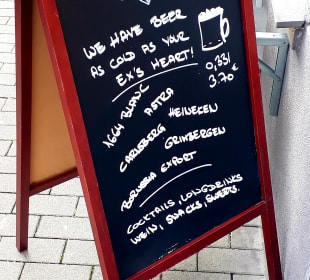 WE HAVE BEER
AS COLD AS YOUR
EX'S HEART!
0,33l
3.70€
1664 BLANC ASTRA
CARLSBERG HEINEKEN
GRIMBERGEN
BORUSSIA EXPORT
COCKTAILS, LONGDRINKS
WEIN, SNACKS, SWEETS.